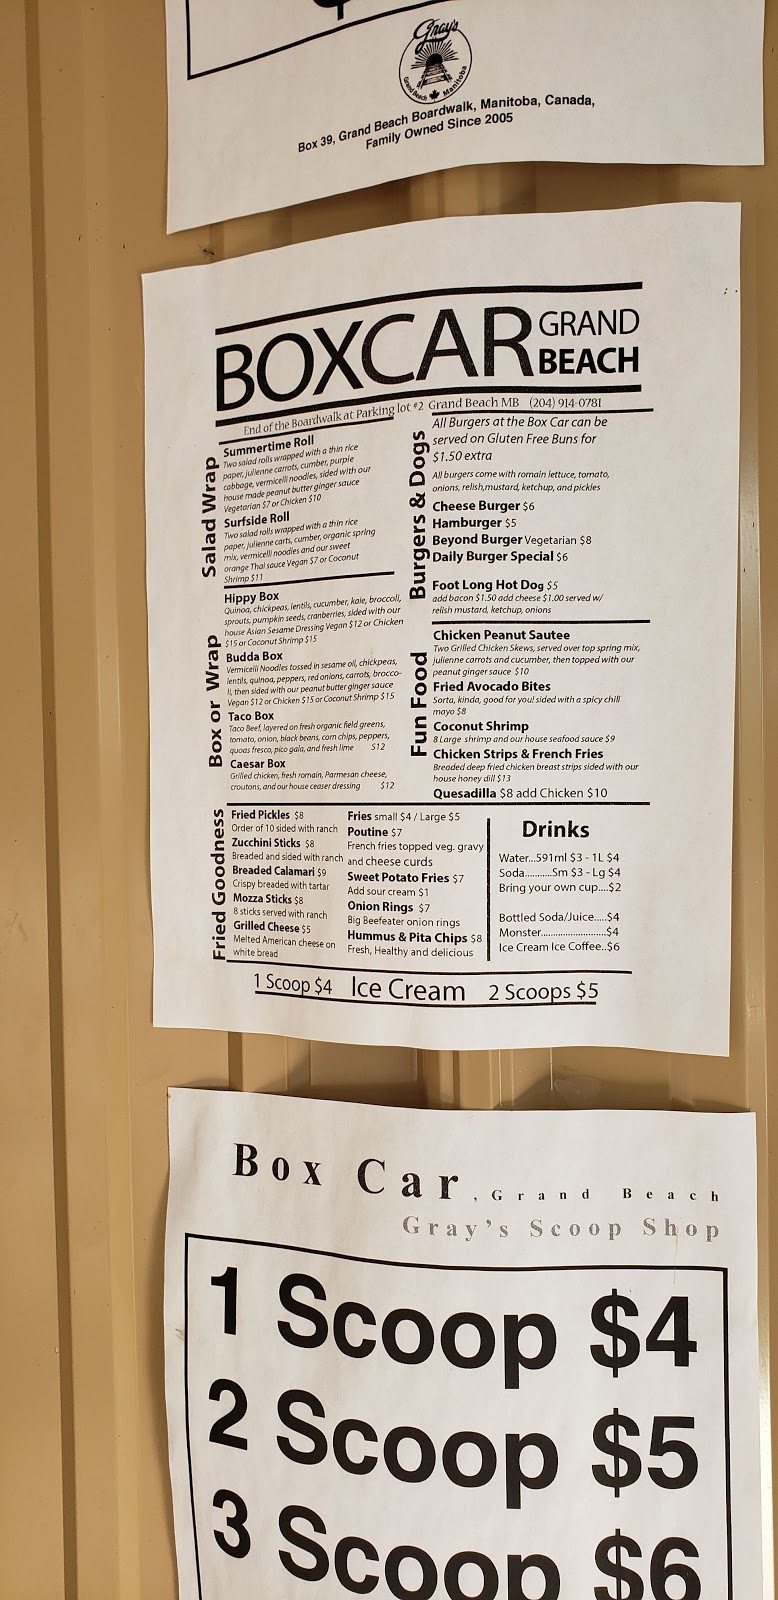 Gray's
Grand Beach Manitoba
Box 39, Grand Beach Boardwalk, Manitoba, Canada,
Family Owned Since 2005
BOXCAR GRAND BEACH
End of the Boardwalk at Parking lot #2 Grand Beach MB (204) 914-0781
Salad Wrap
Summertime Roll
Two salad rolls wrapped with a thin rice
paper, julienne carrots, cumber, purple
cabbage, vermicelli noodles, sided with our
house made peanut butter ginger sauce
Vegetarian $7 or Chicken $10
Surfside Roll
Two salad rolls wrapped with a thin rice
paper, julienne carts, cumber, organic spring
mix, vermicelli noodles and our sweet
orange Thai sauce Vegan $7 or Coconut
Shrimp $11
Box or Wrap
Hippy Box
Quinoa, chickpeas, lentils, cucumber, kale, broccoli,
sprouts, pumpkin seeds, cranberries, sided with our
house Asian Sesame Dressing Vegan $12 or Chicken
$15 or Coconut Shrimp $15
Budda Box
Vermicelli Noodles tossed in sesame oil, chickpeas,
lentils, quinoa, peppers, red onions, carrots, brocco-
li, then sided with our peanut butter ginger sauce
Vegan $12 or Chicken $15 or Coconut Shrimp $15
Taco Box
Taco Beef, layered on fresh organic field greens,
tomato, onion, black beans, corn chips, peppers,
quoas fresco, pico gala, and fresh lime $12
Caesar Box
Grilled chicken, fresh romain, Parmesan cheese,
croutons, and our house ceaser dressing $12
Burgers & Dogs
All Burgers at the Box Car can be
served on Gluten Free Buns for
$1.50 extra
All burgers come with romain lettuce, tomato,
onions, relish,mustard, ketchup, and pickles
Cheese Burger $6
Hamburger $5
Beyond Burger Vegetarian $8
Daily Burger Special $6
Foot Long Hot Dog $5
add bacon $1.50 add cheese $1.00 served w/
relish mustard, ketchup, onions
Fun Food
Chicken Peanut Sautee
Two Grilled Chicken Skews, served over top spring mix,
julienne carrots and cucumber, then topped with our
peanut ginger sauce $10
Fried Avocado Bites
Sorta, kinda, good for you! sided with a spicy chili
mayo $8
Coconut Shrimp
8 Large shrimp and our house seafood sauce $9
Chicken Strips & French Fries
Breaded deep fried chicken breast strips sided with our
house honey dill $13
Quesadilla $8 add Chicken $10
Fried Goodness
Fried Pickles $8
Order of 10 sided with ranch
Zucchini Sticks $8
Breaded and sided with ranch
Breaded Calamari $9
Crispy breaded with tartar
Mozza Sticks $8
8 sticks served with ranch
Grilled Cheese $5
Melted American cheese on
white bread
Fries small $4 / Large $5
Poutine $7
French fries topped veg. gravy
and cheese curds
Sweet Potato Fries $7
Add sour cream $1
Onion Rings $7
Big Beefeater onion rings
Hummus & Pita Chips $8
Fresh, Healthy and delicious
Drinks
Water...591ml $3 - 1L $4
Soda..........Sm $3 - Lg $4
Bring your own cup....$2
Bottled Soda/Juice.....$4
Monster..........................$4
Ice Cream Ice Coffee..$6
1 Scoop $4 Ice Cream 2 Scoops $5
Box Car, Grand Beach
Gray's Scoop Shop
1 Scoop $4
2 Scoop $5
3 Scoop $6